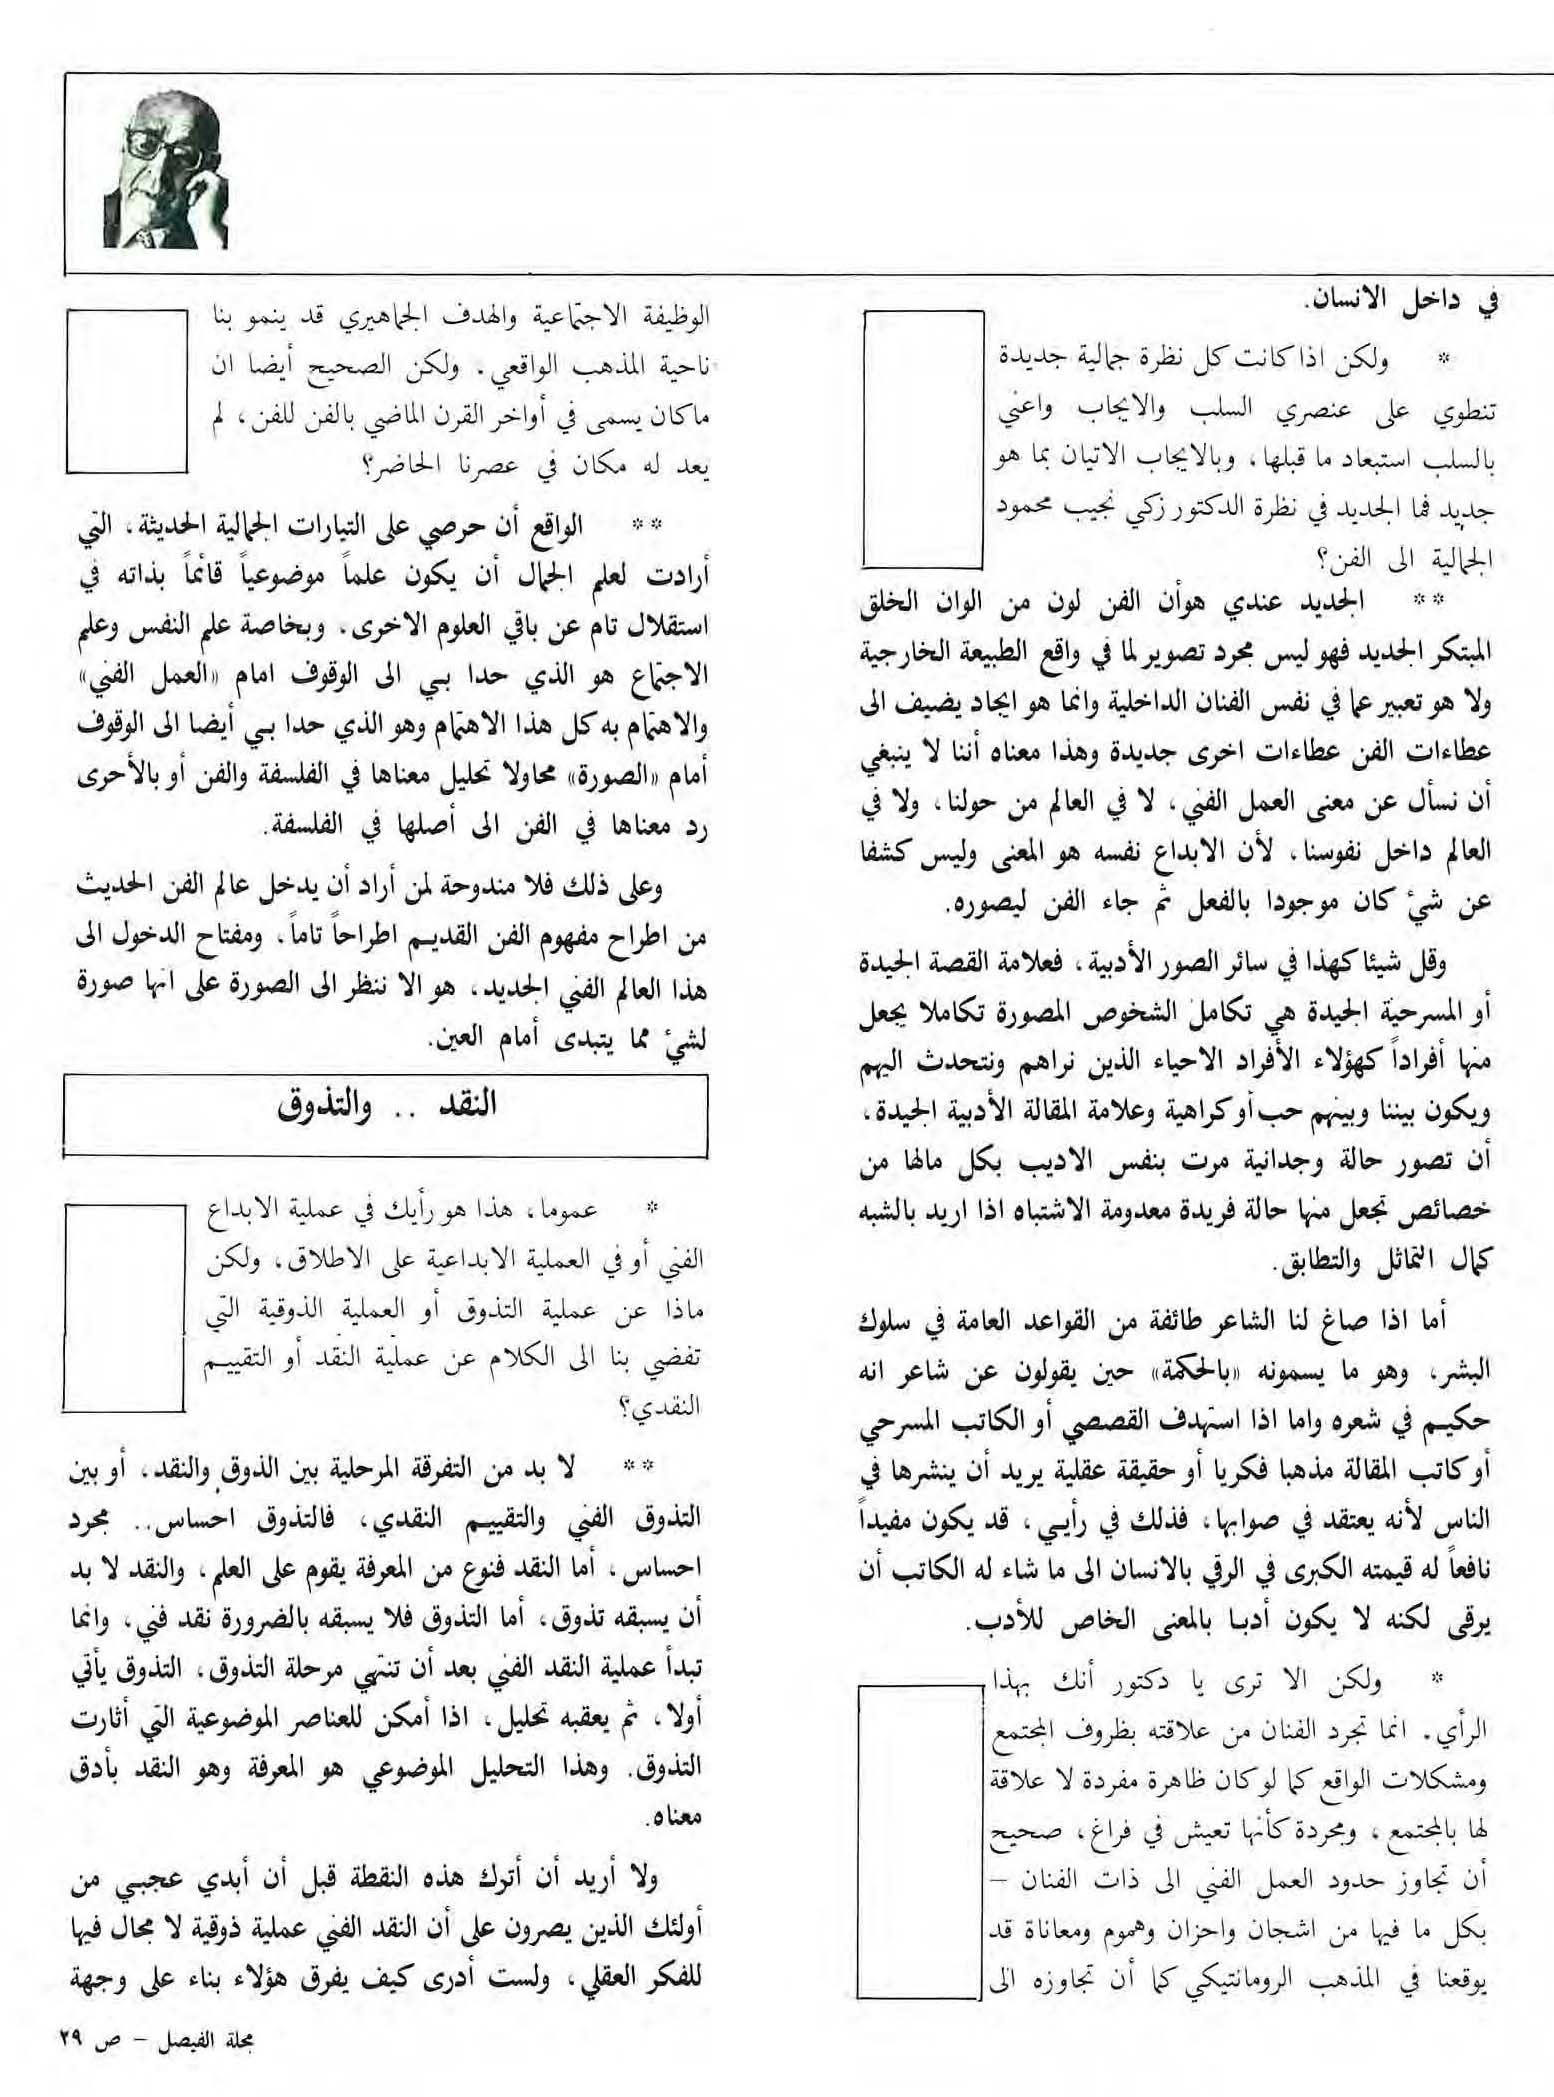 في داخل الانسان.
* ولكن اذا كانت كل نظرة جمالية جديدة
تنطوي على عنصري السلب والايجاب واعني
بالسلب استبعاد ما قبلها، وبالايجاب الاتيان بما هو
جديد فما الجديد في نظرة الدكتور زكي نجيب محمود
الجمالية الى الفن؟
** الجديد عندي هوأن الفن لون من الوان الخلق
المبتكر الجديد فهو ليس مجرد تصوير لما في واقع الطبيعة الخارجية
ولا هو تعبير عما في نفس الفنان الداخلية وانما هو ايجاد يضيف الى
عطاءات الفن عطاءات اخرى جديدة وهذا معناه أننا لا ينبغي
أن نسأل عن معنى العمل الفني، لا في العالم من حولنا، ولا في
العالم داخل نفوسنا، لأن الابداع نفسه هو المعنى وليس كشفا
عن شيء كان موجودا بالفعل ثم جاء الفن ليصوره.
وقل شيئا كهذا في سائر الصور الأدبية، فعلامة القصة الجيدة
أو المسرحية الجيدة هي تكامل الشخوص المصورة تكاملا يجعل
منها أفراداً كهؤلاء الأفراد الاحياء الذين نراهم ونتحدث اليهم
ويكون بيننا وبينهم حب أو كراهية وعلامة المقالة الأدبية الجيدة،
أن تصور حالة وجدانية مرت بنفس الاديب بكل مالها من
خصائص تجعل منها حالة فريدة معدومة الاشتباه اذا اريد بالشبه
كمال التماثل والتطابق.
أما اذا صاغ لنا الشاعر طائفة من القواعد العامة في سلوك
البشر، وهو ما يسمونه «بالحكمة» حين يقولون عن شاعر انه
حكيم في شعره واما اذا استهدف القصصي أو الكاتب المسرحي
أو كاتب المقالة مذهبا فكريا أو حقيقة عقلية يريد أن ينشرها في
الناس لأنه يعتقد في صوابها، فذلك في رأيي، قد يكون مفيداً
نافعاً له قيمته الكبرى في الرقي بالانسان الى ما شاء له الكاتب أن
يرقى لكنه لا يكون أدبا بالمعنى الخاص للأدب.
* ولكن الا ترى يا دكتور أنك بهذا
الرأي. انما تجرد الفنان من علاقته بظروف المجتمع
ومشكلات الواقع كما لو كان ظاهرة مفردة لا علاقة
لها بالمجتمع، ومجردة كأنها تعيش في فراغ، صحيح
أن تجاوز حدود العمل الفني الى ذات الفنان –
بكل ما فيها من اشجان واحزان وهموم ومعاناة قد
يوقعنا في المذهب الرومانتيكي كما أن تجاوزه الى
الوظيفة الاجتماعية والهدف الجماهيري قد ينمو بنا
ناحية المذهب الواقعي. ولكن الصحيح أيضا ان
ماكان يسمى في أواخر القرن الماضي بالفن للفن، لم
يعد له مكان في عصرنا الحاضر؟
** الواقع أن حرصي على التيارات الجمالية الحديثة، التي
أرادت لعلم الجمال أن يكون علماً موضوعياً قائماً بذاته في
استقلال تام عن باقي العلوم الاخرى، وبخاصة علم النفس وعلم
الاجتماع هو الذي حدا بي الى الوقوف امام «العمل الفني»
والاهتمام به كل هذا الاهتمام وهو الذي حدا بي أيضا الى الوقوف
أمام «الصورة» محاولا تحليل معناها في الفلسفة والفن أو بالأحرى
رد معناها في الفن الى أصلها في الفلسفة.
وعلى ذلك فلا مندوحة لمن أراد أن يدخل عالم الفن الحديث
من اطراح مفهوم الفن القديم اطراحاً تاماً، ومفتاح الدخول الى
هذا العالم الفني الجديد، هو الا ننظر الى الصورة على انها صورة
لشيء مما يتبدى أمام العين.
النقد .. والتذوق
* عموما، هذا هو رأيك في عملية الابداع
الفني أو في العملية الابداعية على الاطلاق، ولكن
ماذا عن عملية التذوق أو العملية الذوقية التي
تفضي بنا الى الكلام عن عملية النقد أو التقييم
النقدي؟
** لا بد من التفرقة المرحلية بين الذوق والنقد، أو بين
التذوق الفني والتقييم النقدي، فالتذوق احساس.. مجرد
احساس، أما النقد فنوع من المعرفة يقوم على العلم، والنقد لا بد
أن يسبقه تذوق، أما التذوق فلا يسبقه بالضرورة نقد فني، وانما
تبدأ عملية النقد الفني بعد أن تنتهي مرحلة التذوق، التذوق يأتي
أولا، ثم يعقبه تحليل، اذا أمكن للعناصر الموضوعية التي أثارت
التذوق. وهذا التحليل الموضوعي هو المعرفة وهو النقد بأدق
معناه.
ولا أريد أن أترك هذه النقطة قبل أن أبدي عجبي من
أولئك الذين يصرون على أن النقد الفني عملية ذوقية لا مجال فيها
للفكر العقلي، ولست أدرى كيف يفرق هؤلاء بناء على وجهة
مجلة الفيصل – ص ٢٩